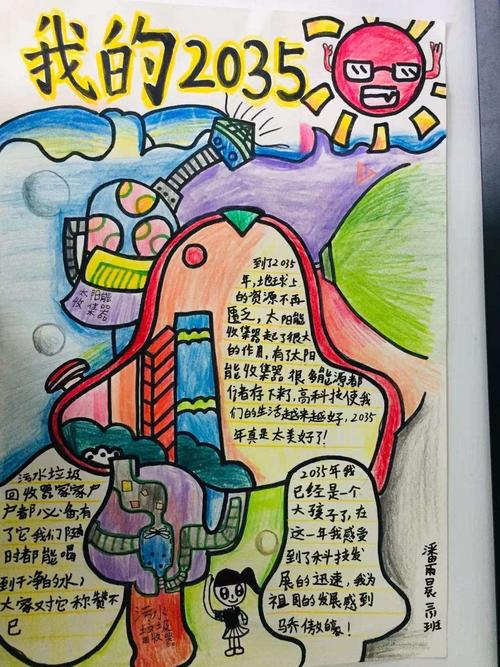 我的2035
太阳能
收集器
到了2035
年,地球上
的资源不再
匮乏,太阳能
收集器起了很大
的作用,有了太阳
能收集器很多能源都
储存下来了,高科技使我
们的生活越来越好,2035
年真是太美好了!
污水垃圾
回收器家家户
户都必备有
了它我们随
时都能喝
到干净的水,
大家对它称赞不
已
污水
垃圾回收器
2035年我
已经是一个
大孩子了,在
这一年我感受
到了科技发
展的迅速,我为
祖国的发展感到
骄傲自豪!
三班